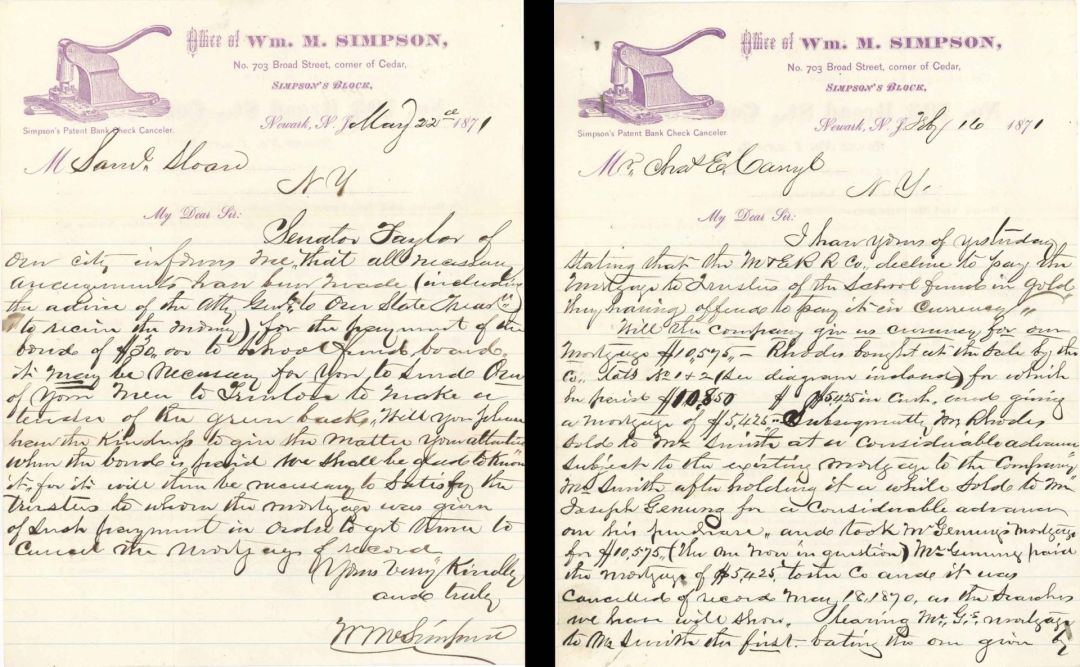 Office of Wm. M. SIMPSON,
No. 703 Broad Street, corner of Cedar,
SIMPSON'S BLOCK,
Simpson's Patent Bank Check Canceler.
Newark, N. J. May 22d 1871
M Saml. Sloan
N Y
My Dear Sir:
Senator Taylor of
Our city informs me, that all necessary
arrangements have been made (including
the advice of the Atty Genl. to Our State Treasr)
to receive the money) for the payment of the
bond of $30,000 to School fund board.
it may be necessary for you to send One
of your men to Trenton to make a
tender of the green backs, Will you please
have the kindness to give the matter your attention
when the bond is paid we shall be glad to know
it, for it will then be necessary to satisfy the
trustees to whom the mortgage was given
of such payment in order to get them to
cancel the mortgage of record
Yours very kindly
and truly
Wm Simpson
Office of Wm. M. SIMPSON,
No. 703 Broad Street, corner of Cedar,
SIMPSON'S BLOCK,
Simpson's Patent Bank Check Canceler.
Newark, N. J. Feby 16 1871
Mr. Chas E. Carryl
N. Y.
My Dear Sir:
I have yours of yesterday
stating that the M & E R R Co., decline to pay the
mortgage to Trustees of the School fund in gold
they having offered to pay it in currency"
Will the Company give us currency for our
mortgage $10,575,, - Rhodes bought at the sale by the
Co., Lots No 1 & 2 (see diagram inclosed) for which
he paid $10,850 $5425 in Cash, and giving
a mortgage of $5,425,, Subsequently Mr Rhodes
sold to Mr Smith at a considerable advance
subject to the existing mortgage to the Company"
Mr Smith after holding it a while sold to Mr
Joseph Genung for a considerable advance
on his purchase, and took Mr Genung's mortgage
for $10,575, (the one now in question) Mr Genung paid
the mortgage of $5,425 to the Co and it was
cancelled of record May 18, 1870, as the searches
we have will show. leaving Mr. G's. mortgage
to Mr Smith the first. bating the one given by